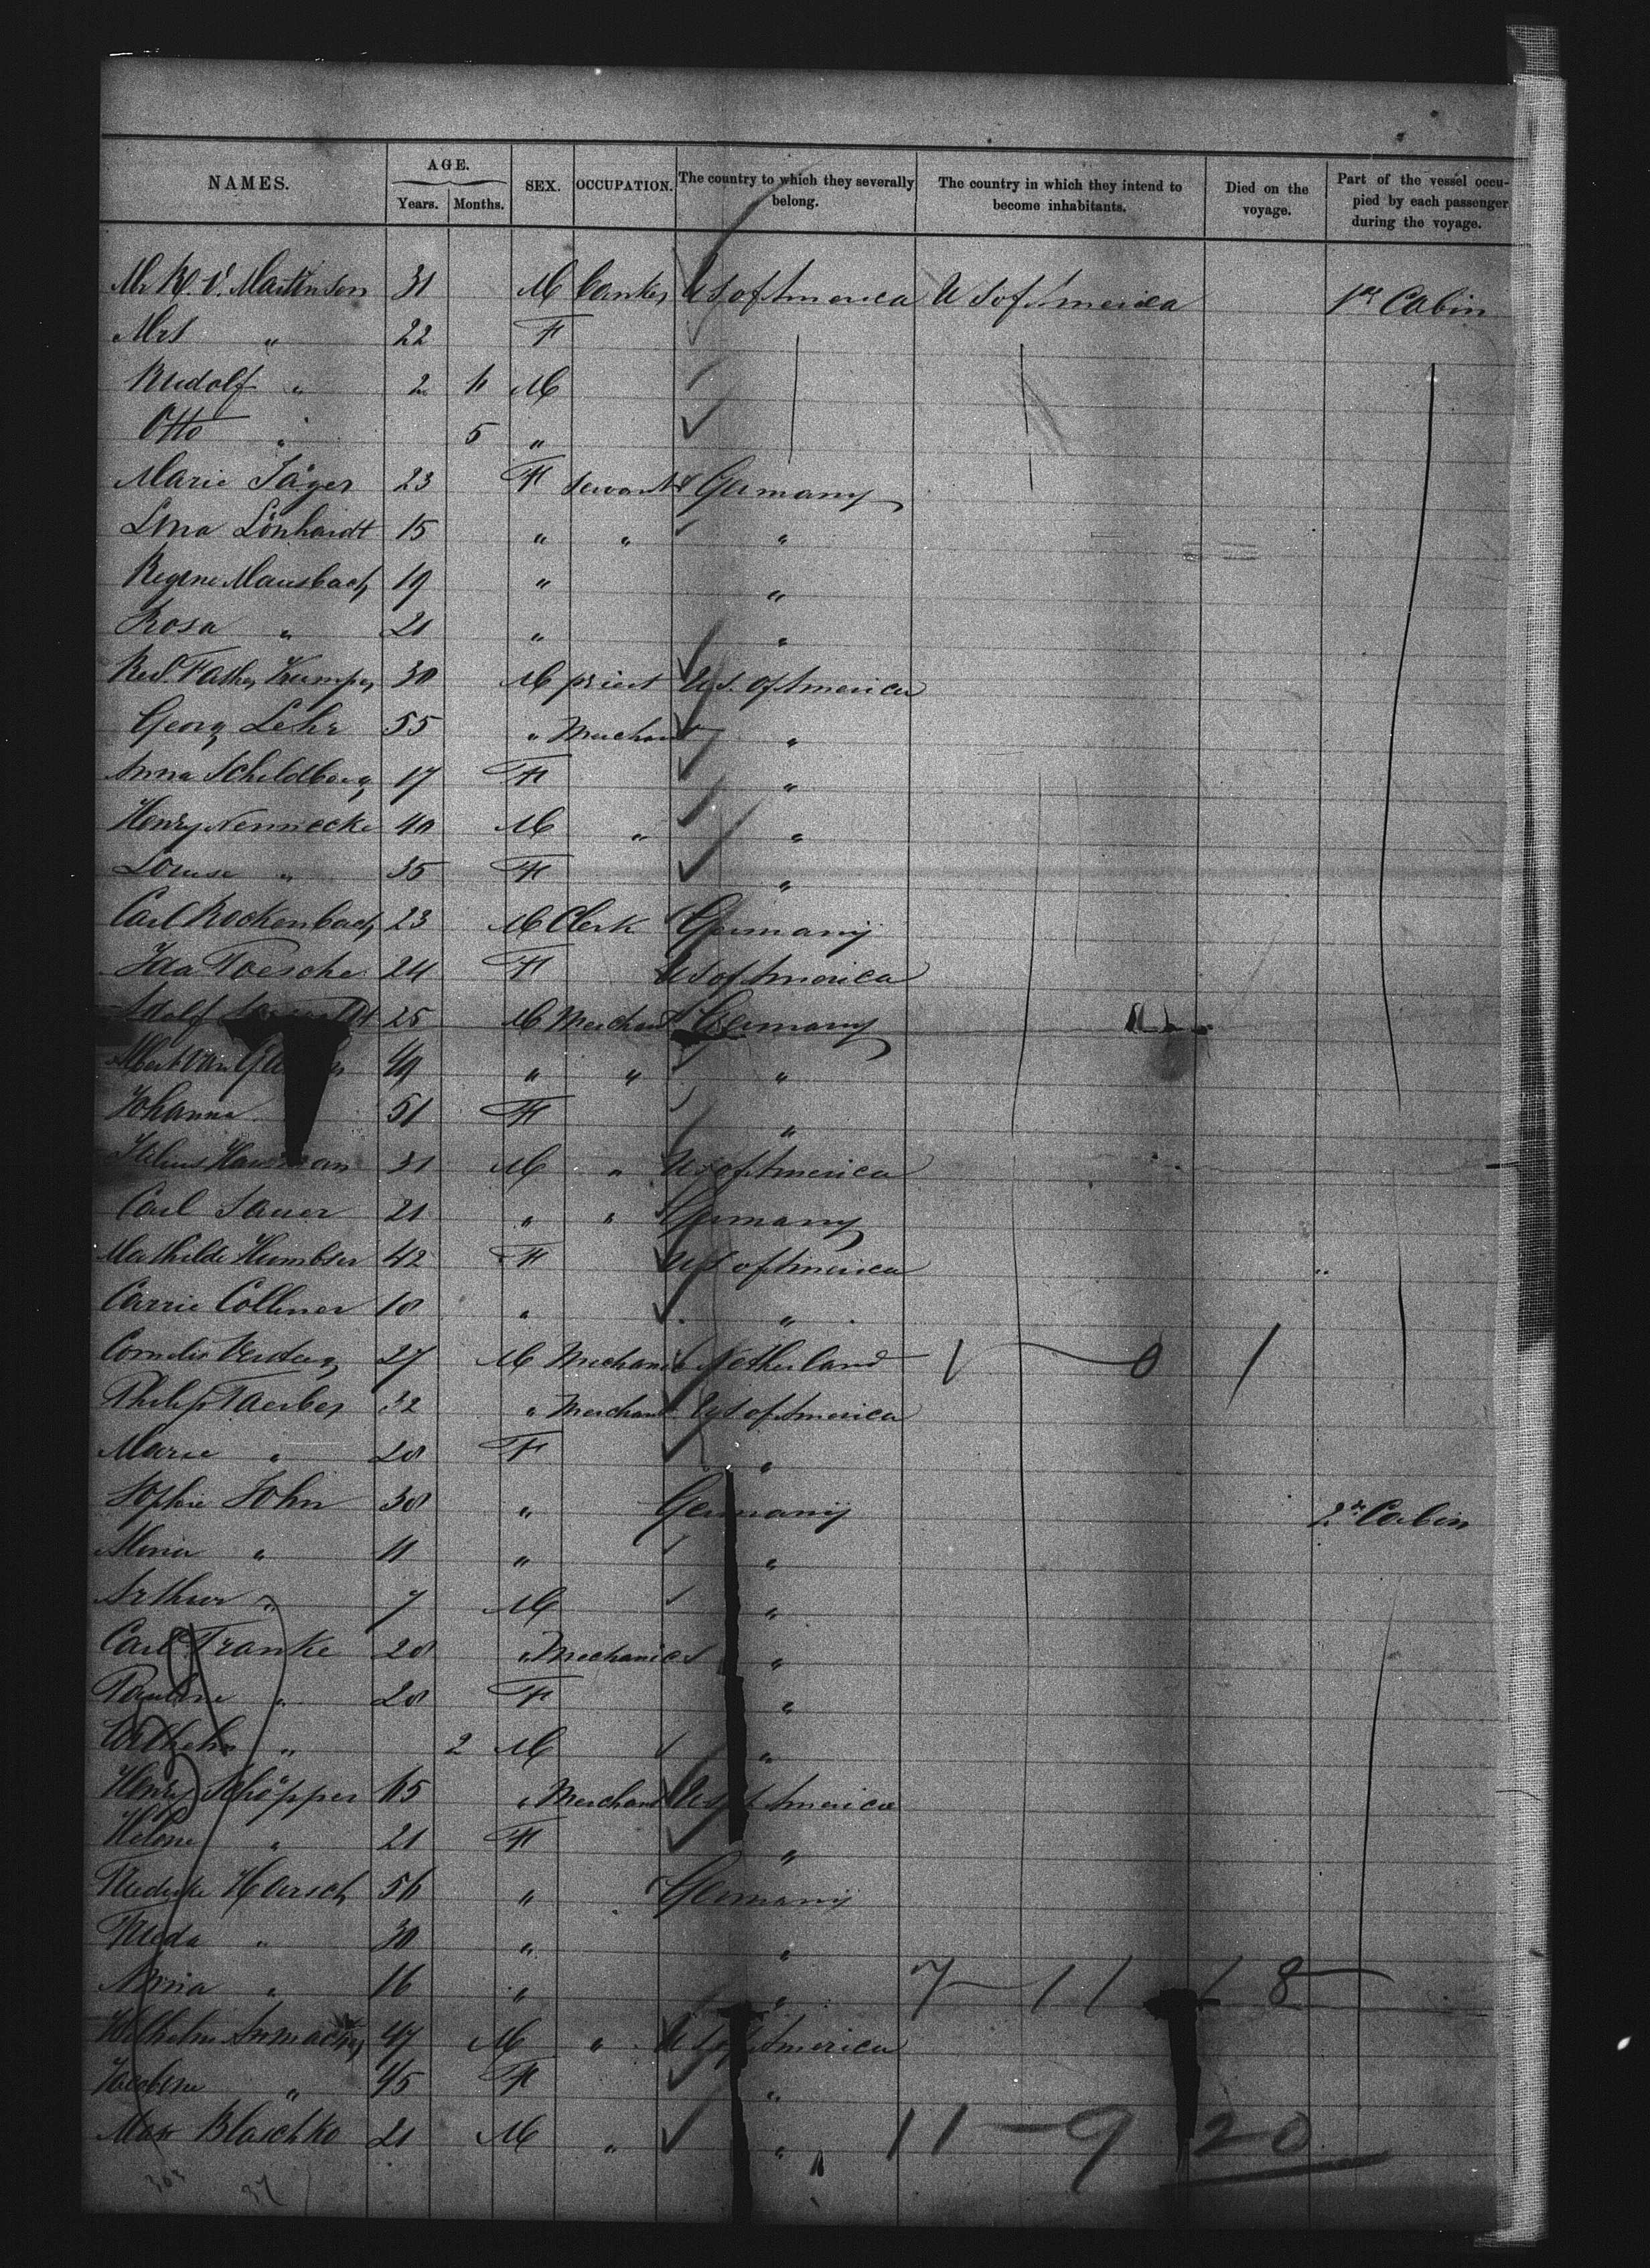 NAMES. AGE. Years. Months. SEX. OCCUPATION. The country to which they severally belong. The country in which they intend to become inhabitants. Died on the voyage. Part of the vessel occupied by each passenger during the voyage.
Mr R. V. Martinson 31 M Banker U S of America U S of America 1st Cabin
Mrs " 22 F
Rudolf " 2 6 M
Otto " 5 "
Marie Jäger 23 F Servant Germany
Lina Lönhardt 15 " " "
Regine Mausbach 19 " "
Rosa " 21 " "
Rev. Father Kumper 30 M priest U.S. of America
Georg Lehr 55 " Merchant "
Anna Scheldberg 17 F "
Henry Nennecke 40 M " "
Louise " 35 F "
Carl Rockenbach 23 M Clerk Germany
Ida Toesche 24 F U S of America
Adolf 25 M Merchant Germany
Albert van 49 " " "
Johanna 51 F "
Julius 31 M " U S of America
Carl Sauer 21 " " Germany
Mathilde Humbser 42 F U S of America
Carrie Collmer 18 " "
Cornelis 27 M Mechanic Netherland
Philip Faerber 32 " Merchant U S of America
Marie " 28 F "
Sophie John 38 " Germany 2nd Cabin
Mina " 11 " "
Arthur " 7 M "
Carl Franke 28 " Mechanics "
Pauline " 28 F "
Wilhelm " 2 M "
Henry Schöpper 65 " Merchant U S of America
Helene " 21 F "
Friederike Harsch 56 " Germany
Frieda " 30 " "
Anna " 16 " "
7 — 11 1 8
Wilhelm 47 M " U S of America
" 45 F "
Max Blaschko 21 M " "
11 - 9 20